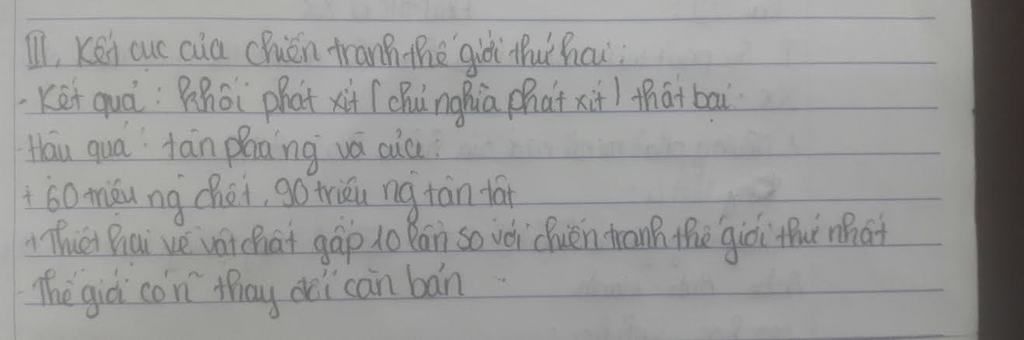 III, Kết cục của chiến tranh thế giới thứ hai:
- Kết quả: khối phát xít (chủ nghĩa phát xít) thất bại
- Hậu quả: tàn phá nặng và của:
+ 60 triệu ng chết, 90 triệu ng tàn tật
+ Thiệt hại về vật chất gấp 10 lần so với chiến tranh thế giới thứ nhất
- Thế giới có n~ thay đổi căn bản